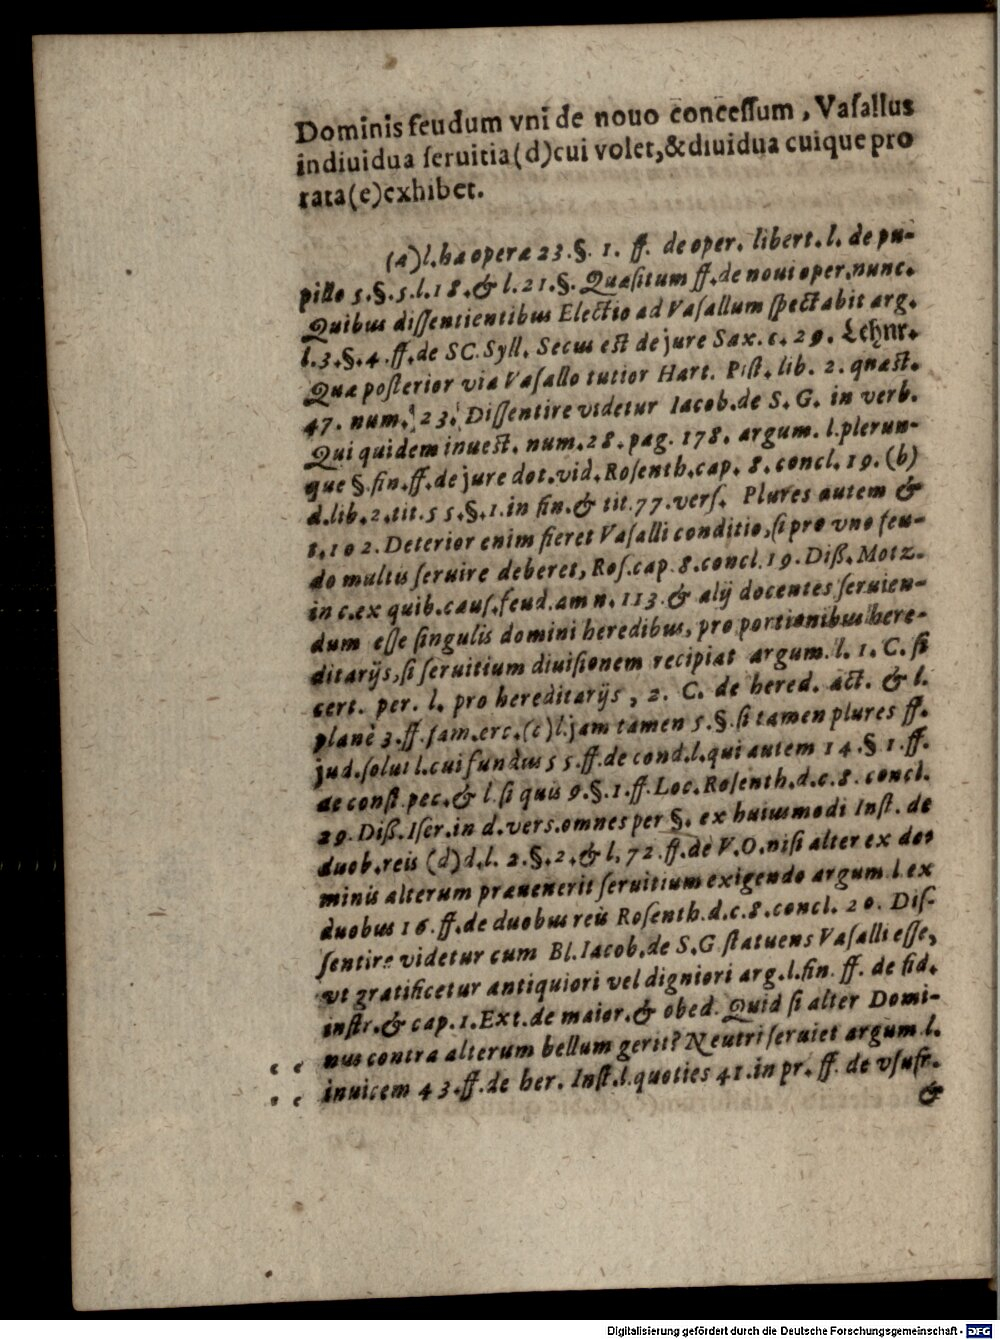 Dominis feudum vni de nouo concessum, Vasallus
indiuidua seruitia (d) cui volet, & diuidua cuique pro
rata (e) exhibet.
(a) l. hæ operæ 23. §. 1. ff. de oper. libert. l. de pu-
pillo 5. §. 5. l. 18. & l. 21. §. Quæsitum ff. de noui oper. nunc.
Quibus dissentientibus Electio ad Vasallum spectabit arg.
l. 3. §. 4. ff. de SC. Syll. Secus est de jure Sax. c. 29. Lehnr.
Quæ posterior via Vasallo tutior Hart. Pist. lib. 2. quæst.
47. num. 23. Dissentire videtur Iacob. de S. G. in verb.
Qui quidem inuest. num. 28. pag. 178. argum. l. plerun-
que §. fin. ff. de jure dot. vid. Rosenth. cap. 8. concl. 19. (b)
d. lib. 2. tit. 55. §. 1. in fin. & tit. 77. vers. Plures autem &
t. 102. Deterior enim fieret Vasalli conditio, si pro vno feu-
do multis seruire deberet, Ros. cap. 8. concl. 19. Diß. Motz.
in c. ex quib. caus. feud. am n. 113. & alij docentes seruien-
dum esse singulis domini heredibus, pro portionibus here-
ditarijs, si seruitium diuisionem recipiat argum. l. 1. C. si
cert. per. l. pro hereditarijs, 2. C. de hered. act. & l.
planè 3. ff. fam. erc. (c) l. jam tamen 5. §. si tamen plures ff.
jud. solui l. cui fundus 55. ff. de cond. l. qui autem 14. § 1. ff.
de const. pec. & l. si quis 9. §. 1. ff. Loc. Rosenth. d. c. 8. concl.
29. Diß. Iser. in d. vers. omnes per §. ex huiusmodi Inst. de
duob. reis (d) d. l. 2. §. 2. & l. 72. ff. de V. O. nisi alter ex do-
minis alterum præuenerit seruitium exigendo argum l. ex
duobus 16. ff. de duobus reis Rosenth. d. c. 8. concl. 20. Dis-
sentire videtur cum Bl. Iacob. de S. G. statuens Vasalli esse,
vt gratificetur antiquiori vel digniori arg. l. fin. ff. de fid.
instr. & cap. 1. Ext. de maior. & obed. Quid si alter Domi-
nus contra alterum bellum gerit? Neutri seruiet argum l.
inuicem 43. ff. de her. Inst. l. quoties 41. in pr. ff. de vsufr.
&
Digitalisierung gefördert durch die Deutsche Forschungsgemeinschaft - DFG